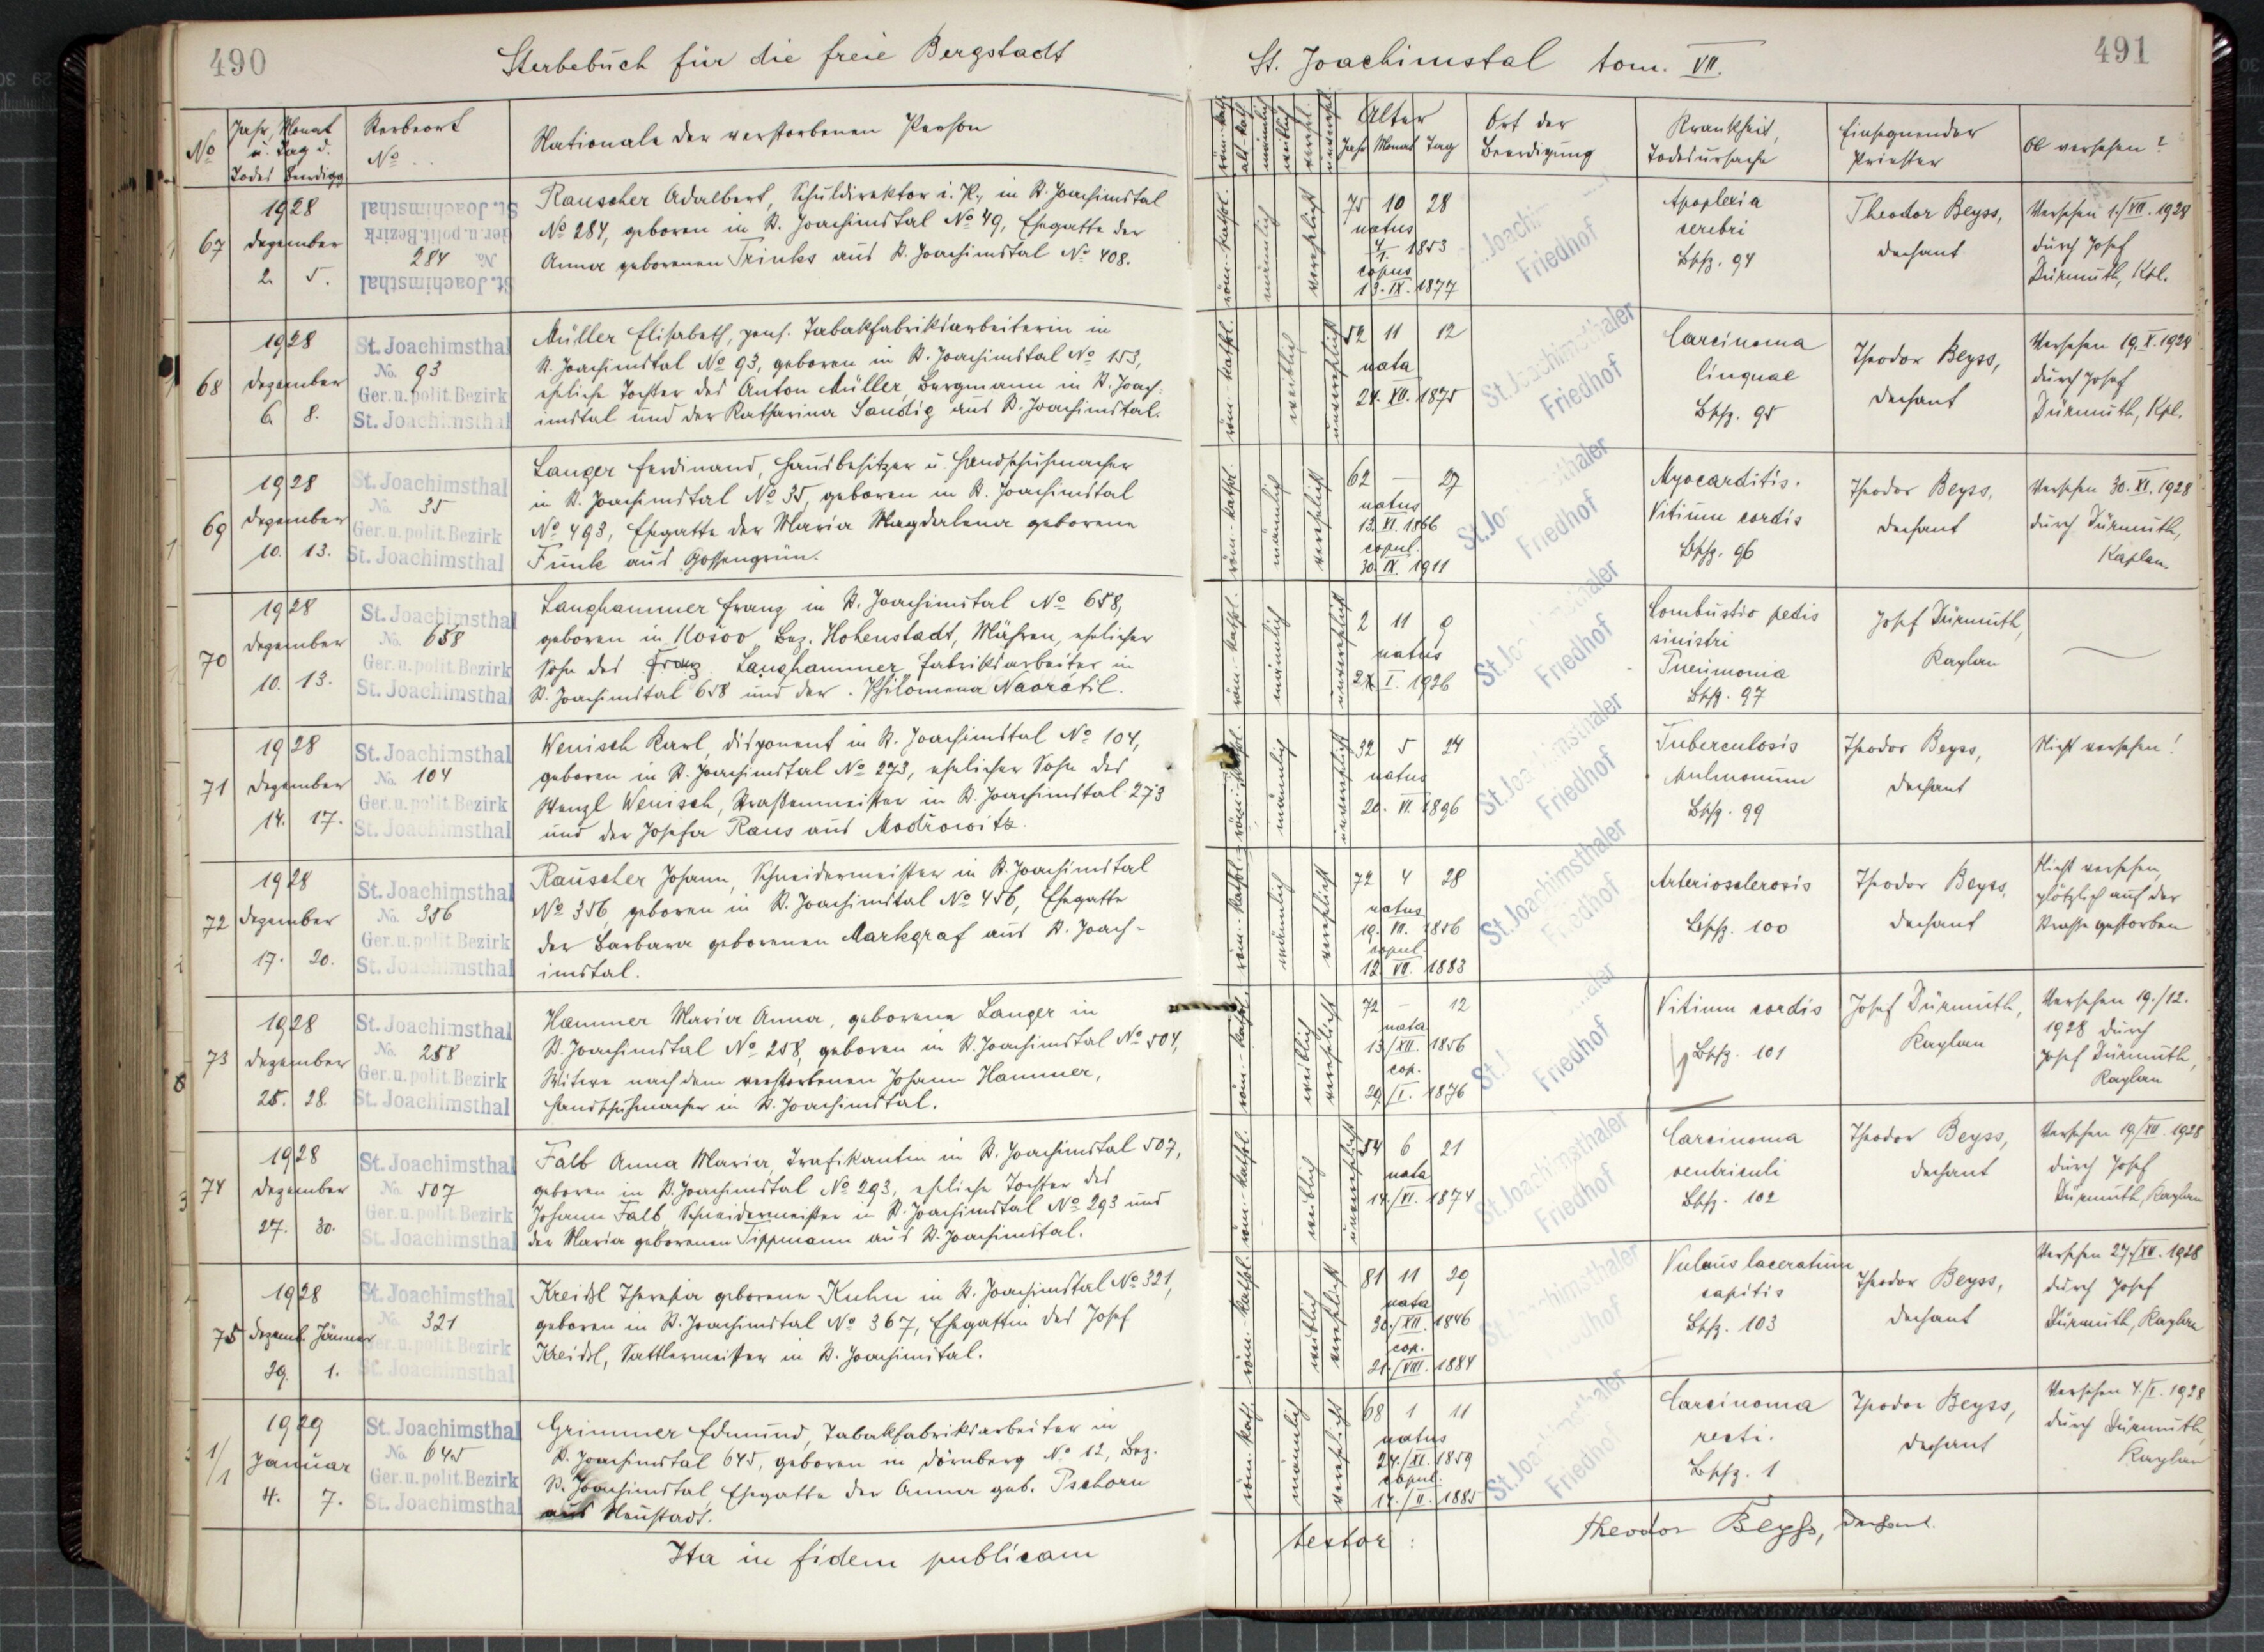 490
Sterbebuch für die freie Bergstadt
№
Jahr, Monat
u. Tag d.
Todes Beerdigg
Sterbeort
№ ..
Nationale der verstorbenen Person
67
1928
Dezember
2. 5.
St. Joachimsthal
Ger. u. polit. Bezirk
No. 284
St. Joachimsthal
Rauscher Adalbert, Schuldirektor i. R., in St. Joachimstal
№ 284, geboren in St. Joachimstal № 49, Ehegatte der
Anna geborenen Trinks aus St. Joachimstal № 408.
68
1928
Dezember
6. 8.
St. Joachimsthal
No. 93
Ger. u. polit. Bezirk
St. Joachimsthal
Müller Elisabeth, pens. Tabakfabriksarbeiterin in
St. Joachimstal № 93, geboren in St. Joachimstal № 153,
eheliche Tochter des Anton Müller, Bergmann in St. Joach-
imstal und der Katharina Sandig aus St. Joachimstal.
69
1928
Dezember
10. 13.
St. Joachimsthal
No. 35
Ger. u. polit. Bezirk
St. Joachimsthal
Langer Ferdinand, Hausbesitzer u. Handschuhmacher
in St. Joachimstal № 35, geboren in St. Joachimstal
№ 493, Ehegatte der Maria Magdalena geborene
Funk aus Gossengrün.
70
1928
Dezember
10. 13.
St. Joachimsthal
No. 658
Ger. u. polit. Bezirk
St. Joachimsthal
Langhammer Franz in St. Joachimstal № 658,
geboren in Kosov Bez. Hohenstadt, Mähren, ehelicher
Sohn des Franz Langhammer, Fabriksarbeiter in
St. Joachimstal 658 und der Philomena Navrátil.
71
1928
Dezember
14. 17.
St. Joachimsthal
No. 104
Ger. u. polit. Bezirk
St. Joachimsthal
Wenisch Karl, Disponent in St. Joachimstal № 104,
geboren in St. Joachimstal № 273, ehelicher Sohn des
Wenzl Wenisch, Straßenmeister in St. Joachimstal 273
und der Josefa Raus aus Modrowitz.
72
1928
Dezember
17. 20.
St. Joachimsthal
No. 356
Ger. u. polit. Bezirk
St. Joachimsthal
Rauscher Johann, Schneidermeister in St. Joachimstal
№ 356, geboren in St. Joachimstal № 456, Ehegatte
der Barbara geborenen Markgraf aus St. Joach-
imstal.
73
1928
Dezember
25. 28.
St. Joachimsthal
No. 258
Ger. u. polit. Bezirk
St. Joachimsthal
Hammer Maria Anna, geborene Langer in
St. Joachimstal № 258, geboren in St. Joachimstal № 504,
Witwe nach dem verstorbenen Johann Hammer,
Handschuhmacher in St. Joachimstal.
74
1928
Dezember
27. 30.
St. Joachimsthal
No. 507
Ger. u. polit. Bezirk
St. Joachimsthal
Falb Anna Maria, Trafikantin in St. Joachimstal 507,
geboren in St. Joachimstal № 293, eheliche Tochter des
Johann Falb, Schneidermeister in St. Joachimstal № 293 und
der Maria geborenen Tippmann aus St. Joachimstal.
75
1928
Dezemb. Jänner
29. 1.
St. Joachimsthal
No. 321
Ger. u. polit. Bezirk
St. Joachimsthal
Kreidl Theresia geborene Kuhn in St. Joachimstal № 321,
geboren in St. Joachimstal № 367, Ehegattin des Josef
Kreidl, Sattlermeister in St. Joachimstal.
1/1
1929
Januar
4. 7.
St. Joachimsthal
No. 645
Ger. u. polit. Bezirk
St. Joachimsthal
Grimmer Edmund, Tabakfabriksarbeiter in
St. Joachimstal 645, geboren in Dörnberg № 12, Bez.
St. Joachimstal, Ehegatte der Anna geb. Pschorn
aus Neustadt.
Ita in fidem publicam
491
St. Joachimstal tom. VII.
röm.-kath.
alt-kath.
männlich
weiblich
verehel.
unverehel.
Alter
Jahr Monat Tag
Ort der
Beerdigung
Krankheit,
Todesursache
Einsegnender
Priester
Ob versehen?
röm.-kathol.
männlich
verehelicht
75 10 28
natus
4/1. 1853
copus
13. IX. 1877
Joachim
Friedhof
Apoplexia
cerebri
Bschz. 94
Theodor Beyss,
Dechant
Versehen 1./XII. 1928
durch Josef
Dürmuth, Kpl.
röm.-kathol.
weiblich
unverehelicht
52 11 12
nata
24. XII. 1875
St. Joachimsthaler
Friedhof
Carcinoma
linguae
Bschz. 95
Theodor Beyss,
Dechant
Versehen 19. X. 1928
durch Josef
Dürmuth, Kpl.
röm.-kathol.
männlich
verehelicht
62 — 27
natus
13. XI. 1866
copul.
30. IX. 1911
St. Jo thaler
Friedhof
Myocarditis.
Vitium cordis
Bschz. 96
Theodor Beyss,
Dechant
Versehen 30. XI. 1928
durch Dürmuth,
Kaplan.
röm.-kathol.
männlich
unverehelicht
2 11 9
natus
I. 1926
St. Jo haler
Friedhof
Combustio pedis
sinistri
Pneumonia
Bschz. 97
Josef Dürmuth,
Kaplan
röm.-kathol.
männlich
unverehelicht
32 5 24
natus
20. VI. 1896
St. Joachimsthaler
Friedhof
Tuberculosis
pulmonum
Bschz. 99
Theodor Beyss,
Dechant
Nicht versehen!
röm.-kathol.
männlich
verehelicht
72 4 28
natus
19. VII. 1856
copul.
12. VII. 1883
St. Joachimsthaler
Friedhof
Arteriosclerosis
Bschz. 100
Theodor Beyss,
Dechant
Nicht versehen,
plötzlich auf der
Strasse gestorben
röm.-kathol.
weiblich
verehelicht
72 — 12
nata
13/XII. 1856
cop.
29/I. 1876
St. J aler
Friedhof
Vitium cordis
Bschz. 101
Josef Dürmuth,
Kaplan
Versehen 19./12.
1928 durch
Josef Dürmuth,
Kaplan
röm.-kathol.
weiblich
unverehelicht
54 6 21
nata
14./VI. 1874
St. Joachimsthaler
Friedhof
Carcinoma
ventriculi
Bschz. 102
Theodor Beyss,
Dechant
Versehen 19/XII. 1928
durch Josef
Dürmuth, Kaplan
röm.-kathol.
weiblich
verehelicht
81 11 29
nata
30./XII. 1846
cop.
21./VIII. 1884
St. Joachimsthaler
Friedhof
Vulnus laceratum
capitis
Bschz. 103
Theodor Beyss,
Dechant
Versehen 27./XII. 1928
durch Josef
Dürmuth, Kaplan
röm.-kath.
männlich
verehelicht
68 1 11
natus
24./XI. 1859
copul.
14./II. 1885
St. Joachimsthaler
Friedhof
Carcinoma
recti.
Bschz. 1
Theodor Beyss,
Dechant
Versehen 4./I. 1928
durch Dürmuth,
Kaplan
testor:
Theodor Beyss, Dechant.